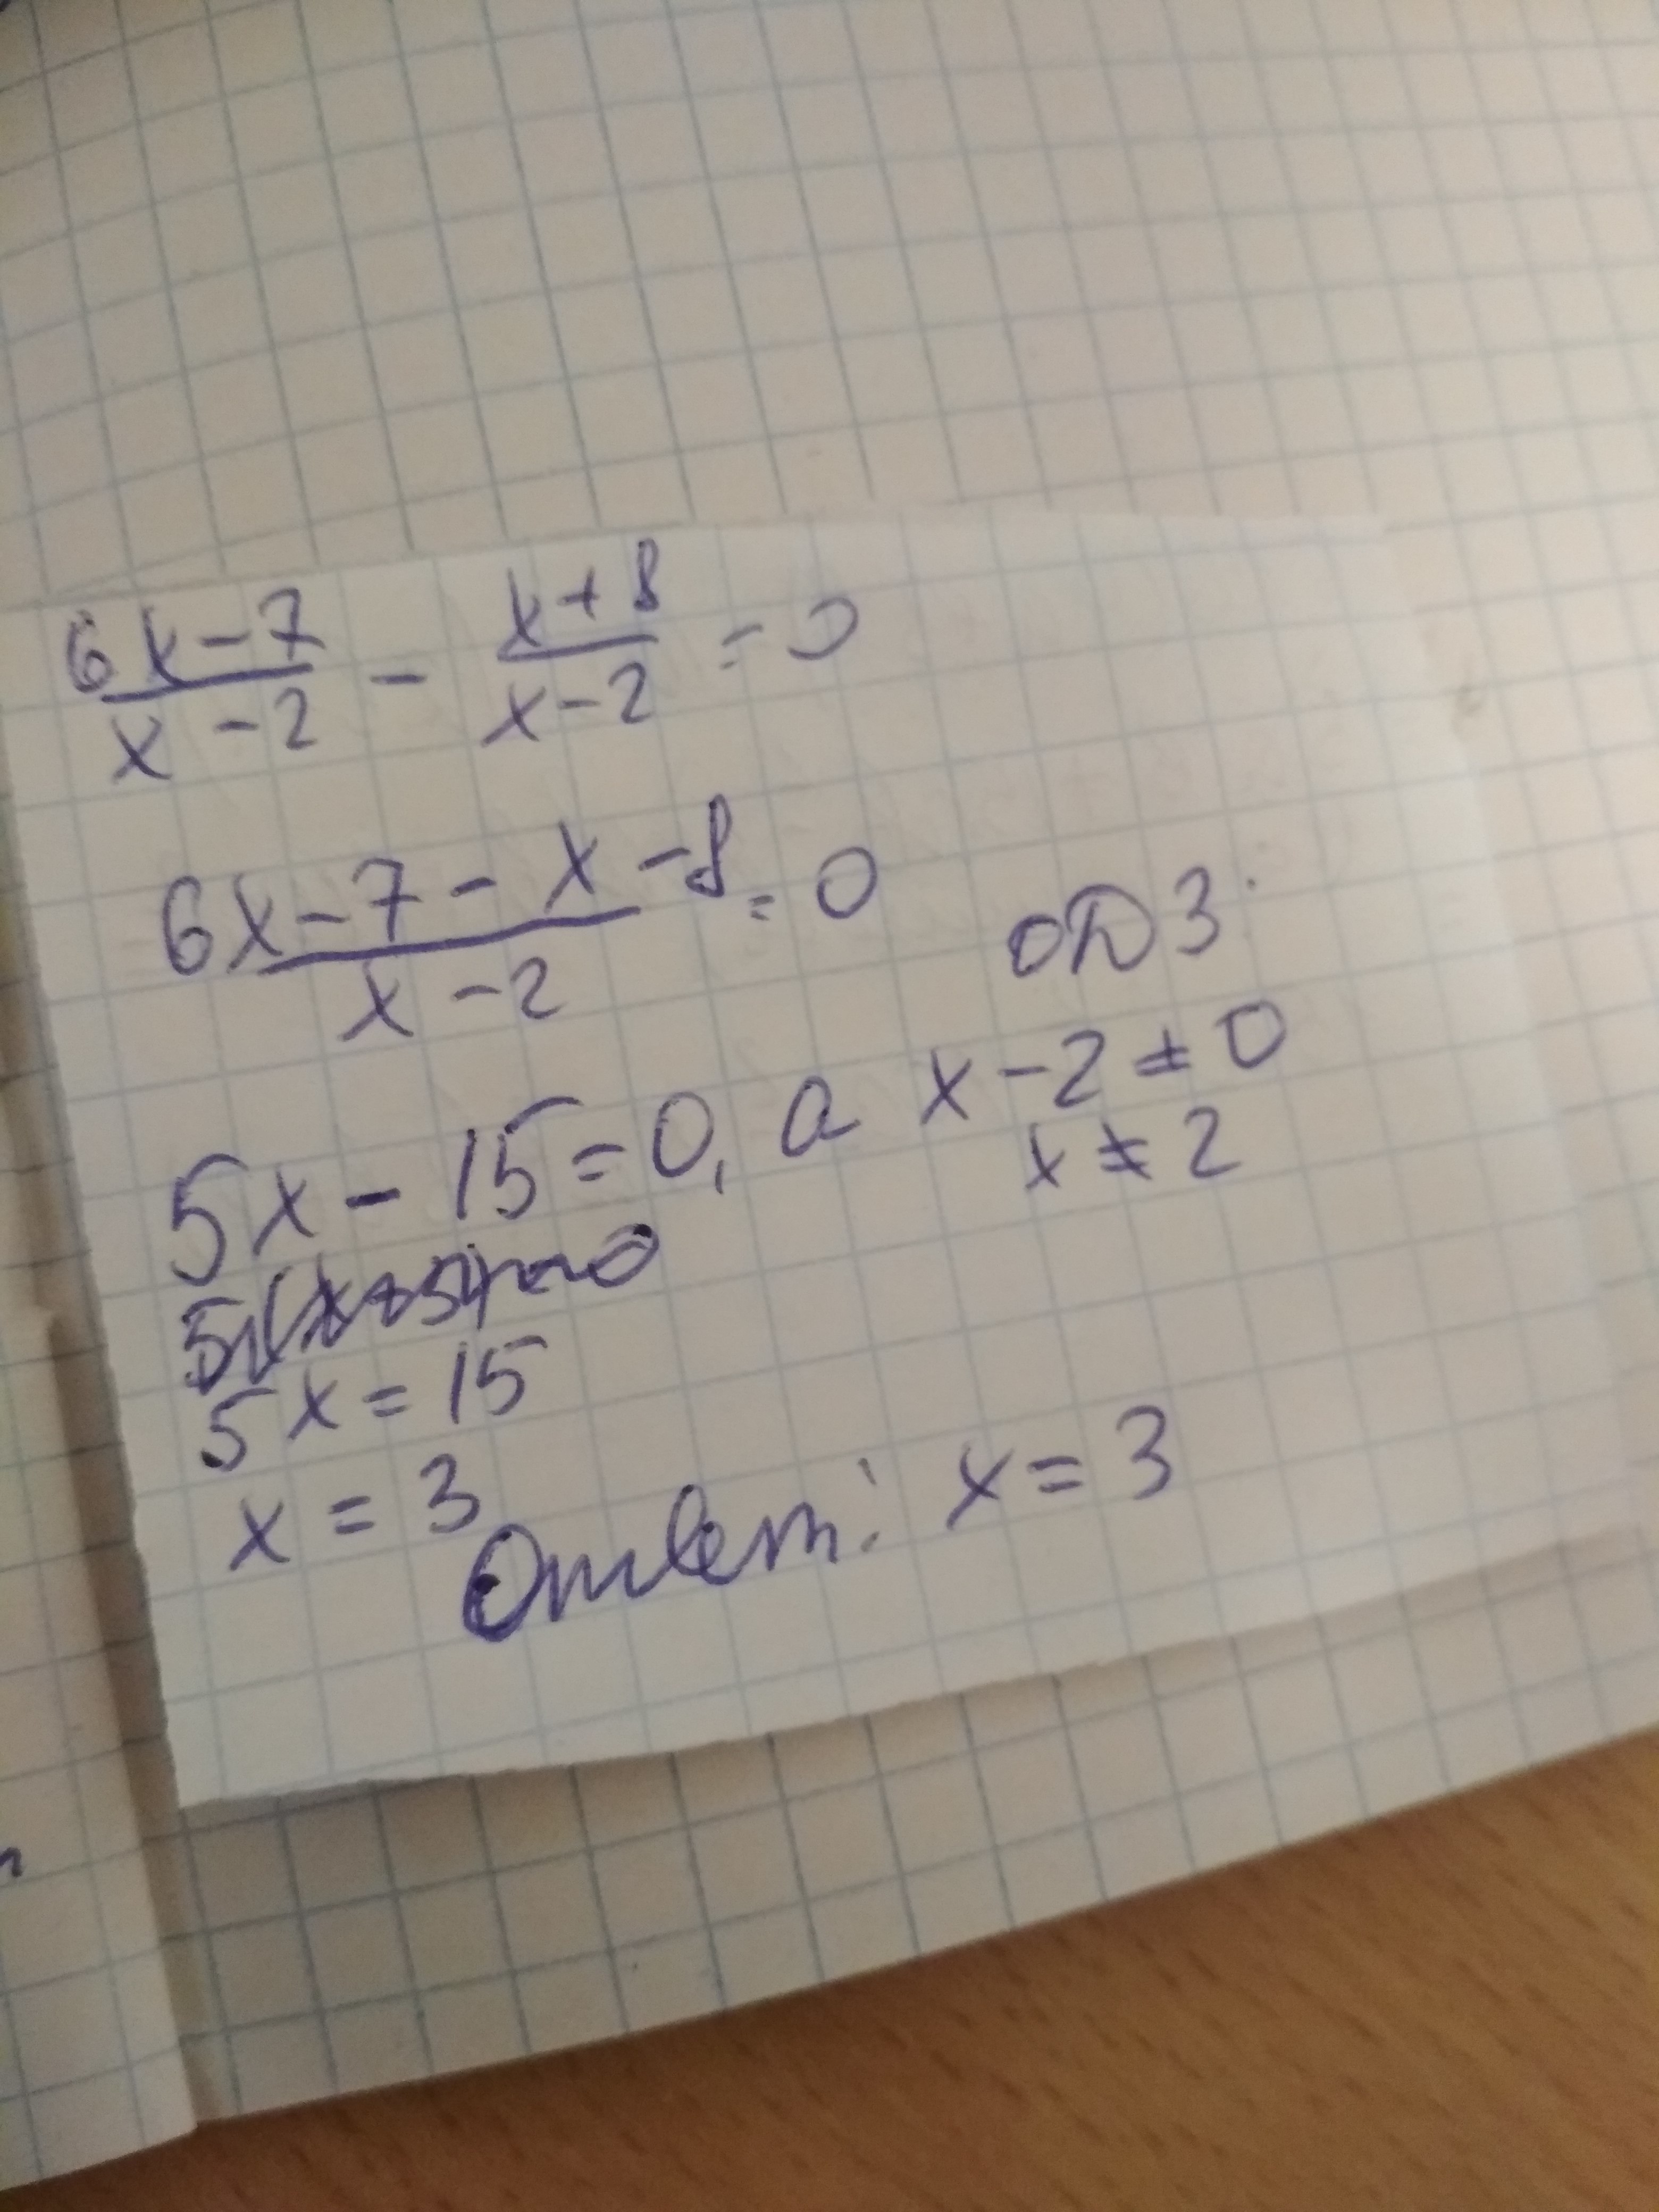 (6x-7)/(x-2) - (x+8)/(x-2) = 0
(6x-7-x-8)/(x-2) = 0
ОДЗ:
5x - 15 = 0, а x - 2 ≠ 0
x ≠ 2
5x = 15
x = 3
Ответ: x = 3